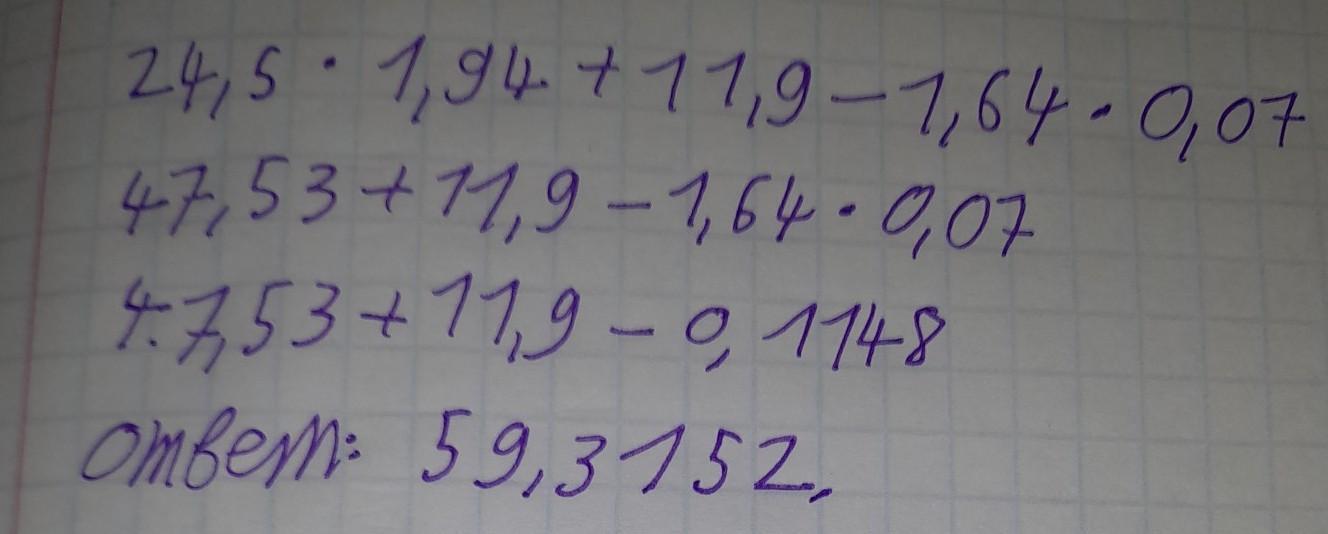 24,5 · 1,94 + 11,9 - 1,64 · 0,07
47,53 + 11,9 - 1,64 · 0,07
47,53 + 11,9 - 0,1148
ответ: 59,3152.